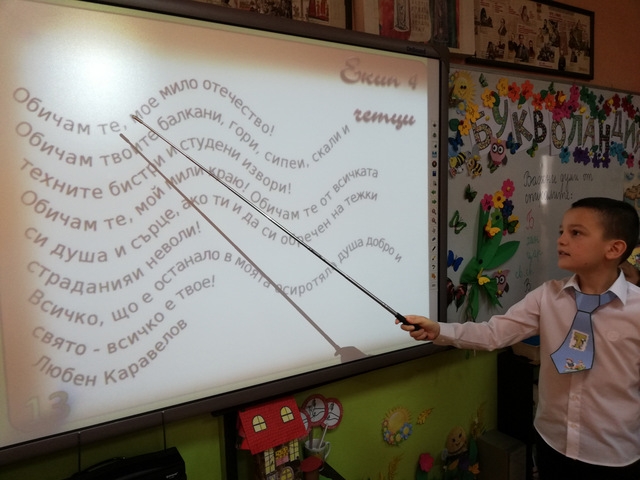 Екип 4
четци
Обичам те, мое мило отечество!
Обичам твоите балкани, гори, сипеи, скали и
техните бистри и студени извори!
Обичам те, мой мили краю! Обичам те от всичката
си душа и сърце, ако ти и да си обречен на тежки
страдания и неволи!
Всичко, що е останало в моята осиротяла душа добро и
свято - всичко е твое!
Любен Каравелов
13
БУКВОЛАНДИЯ